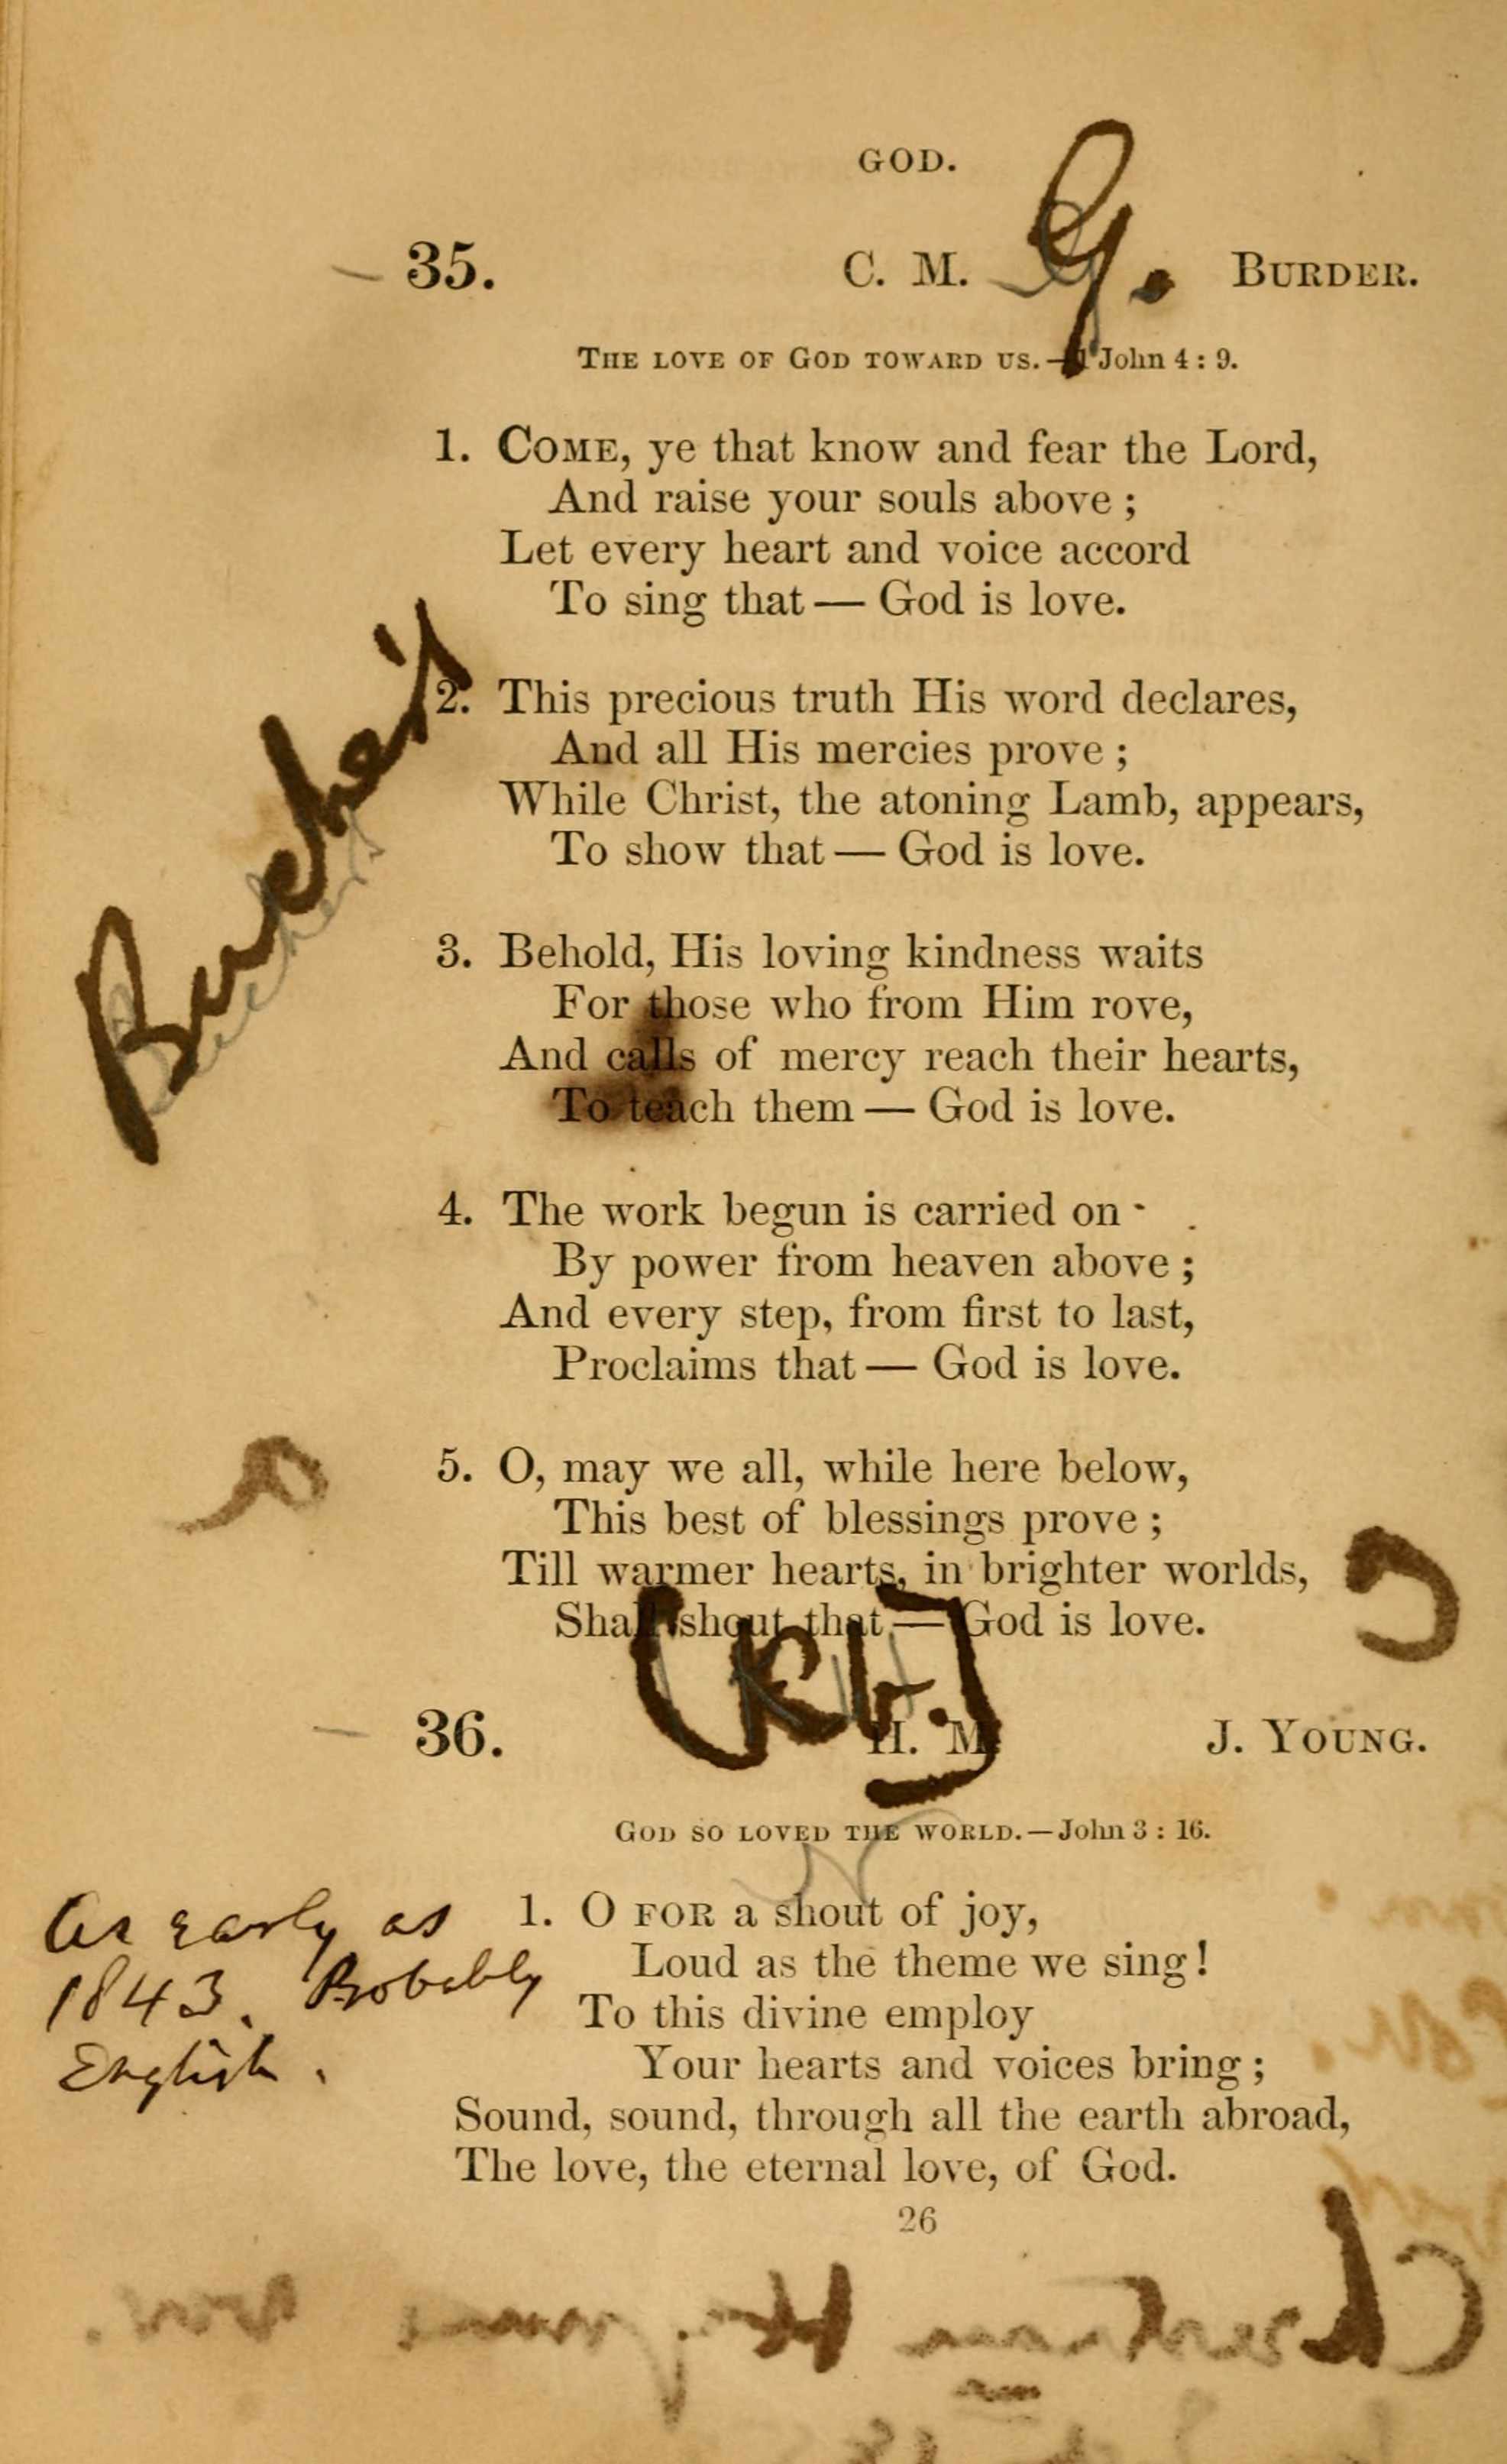 GOD.
35. C. M. G. BURDER.
THE LOVE OF GOD TOWARD US.—1 John 4 : 9.
1. COME, ye that know and fear the Lord,
And raise your souls above ;
Let every heart and voice accord
To sing that — God is love.
2. This precious truth His word declares,
And all His mercies prove ;
While Christ, the atoning Lamb, appears,
To show that — God is love.
3. Behold, His loving kindness waits
For those who from Him rove,
And calls of mercy reach their hearts,
To teach them — God is love.
4. The work begun is carried on
By power from heaven above ;
And every step, from first to last,
Proclaims that — God is love.
5. O, may we all, while here below,
This best of blessings prove ;
Till warmer hearts, in brighter worlds,
Shall shout that — God is love.
36. H. M. J. YOUNG.
GOD SO LOVED THE WORLD.—John 3 : 16.
As early as
1843. Probably
English.
1. O FOR a shout of joy,
Loud as the theme we sing!
To this divine employ
Your hearts and voices bring ;
Sound, sound, through all the earth abroad,
The love, the eternal love, of God.
26